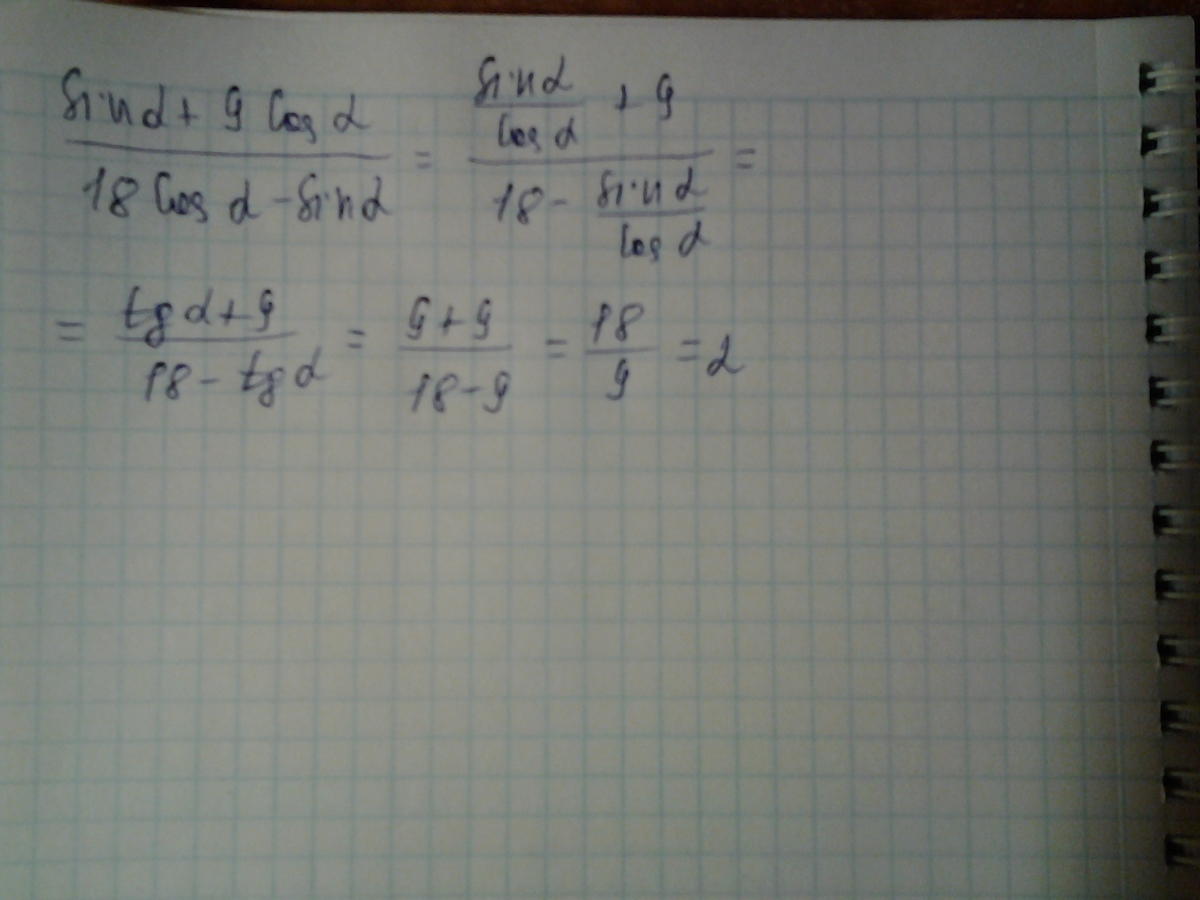 (sin α + 9 cos α)/(18 cos α - sin α) = (sin α/cos α + 9)/(18 - sin α/cos α) =
= (tg α + 9)/(18 - tg α) = (9 + 9)/(18 - 9) = 18/9 = 2